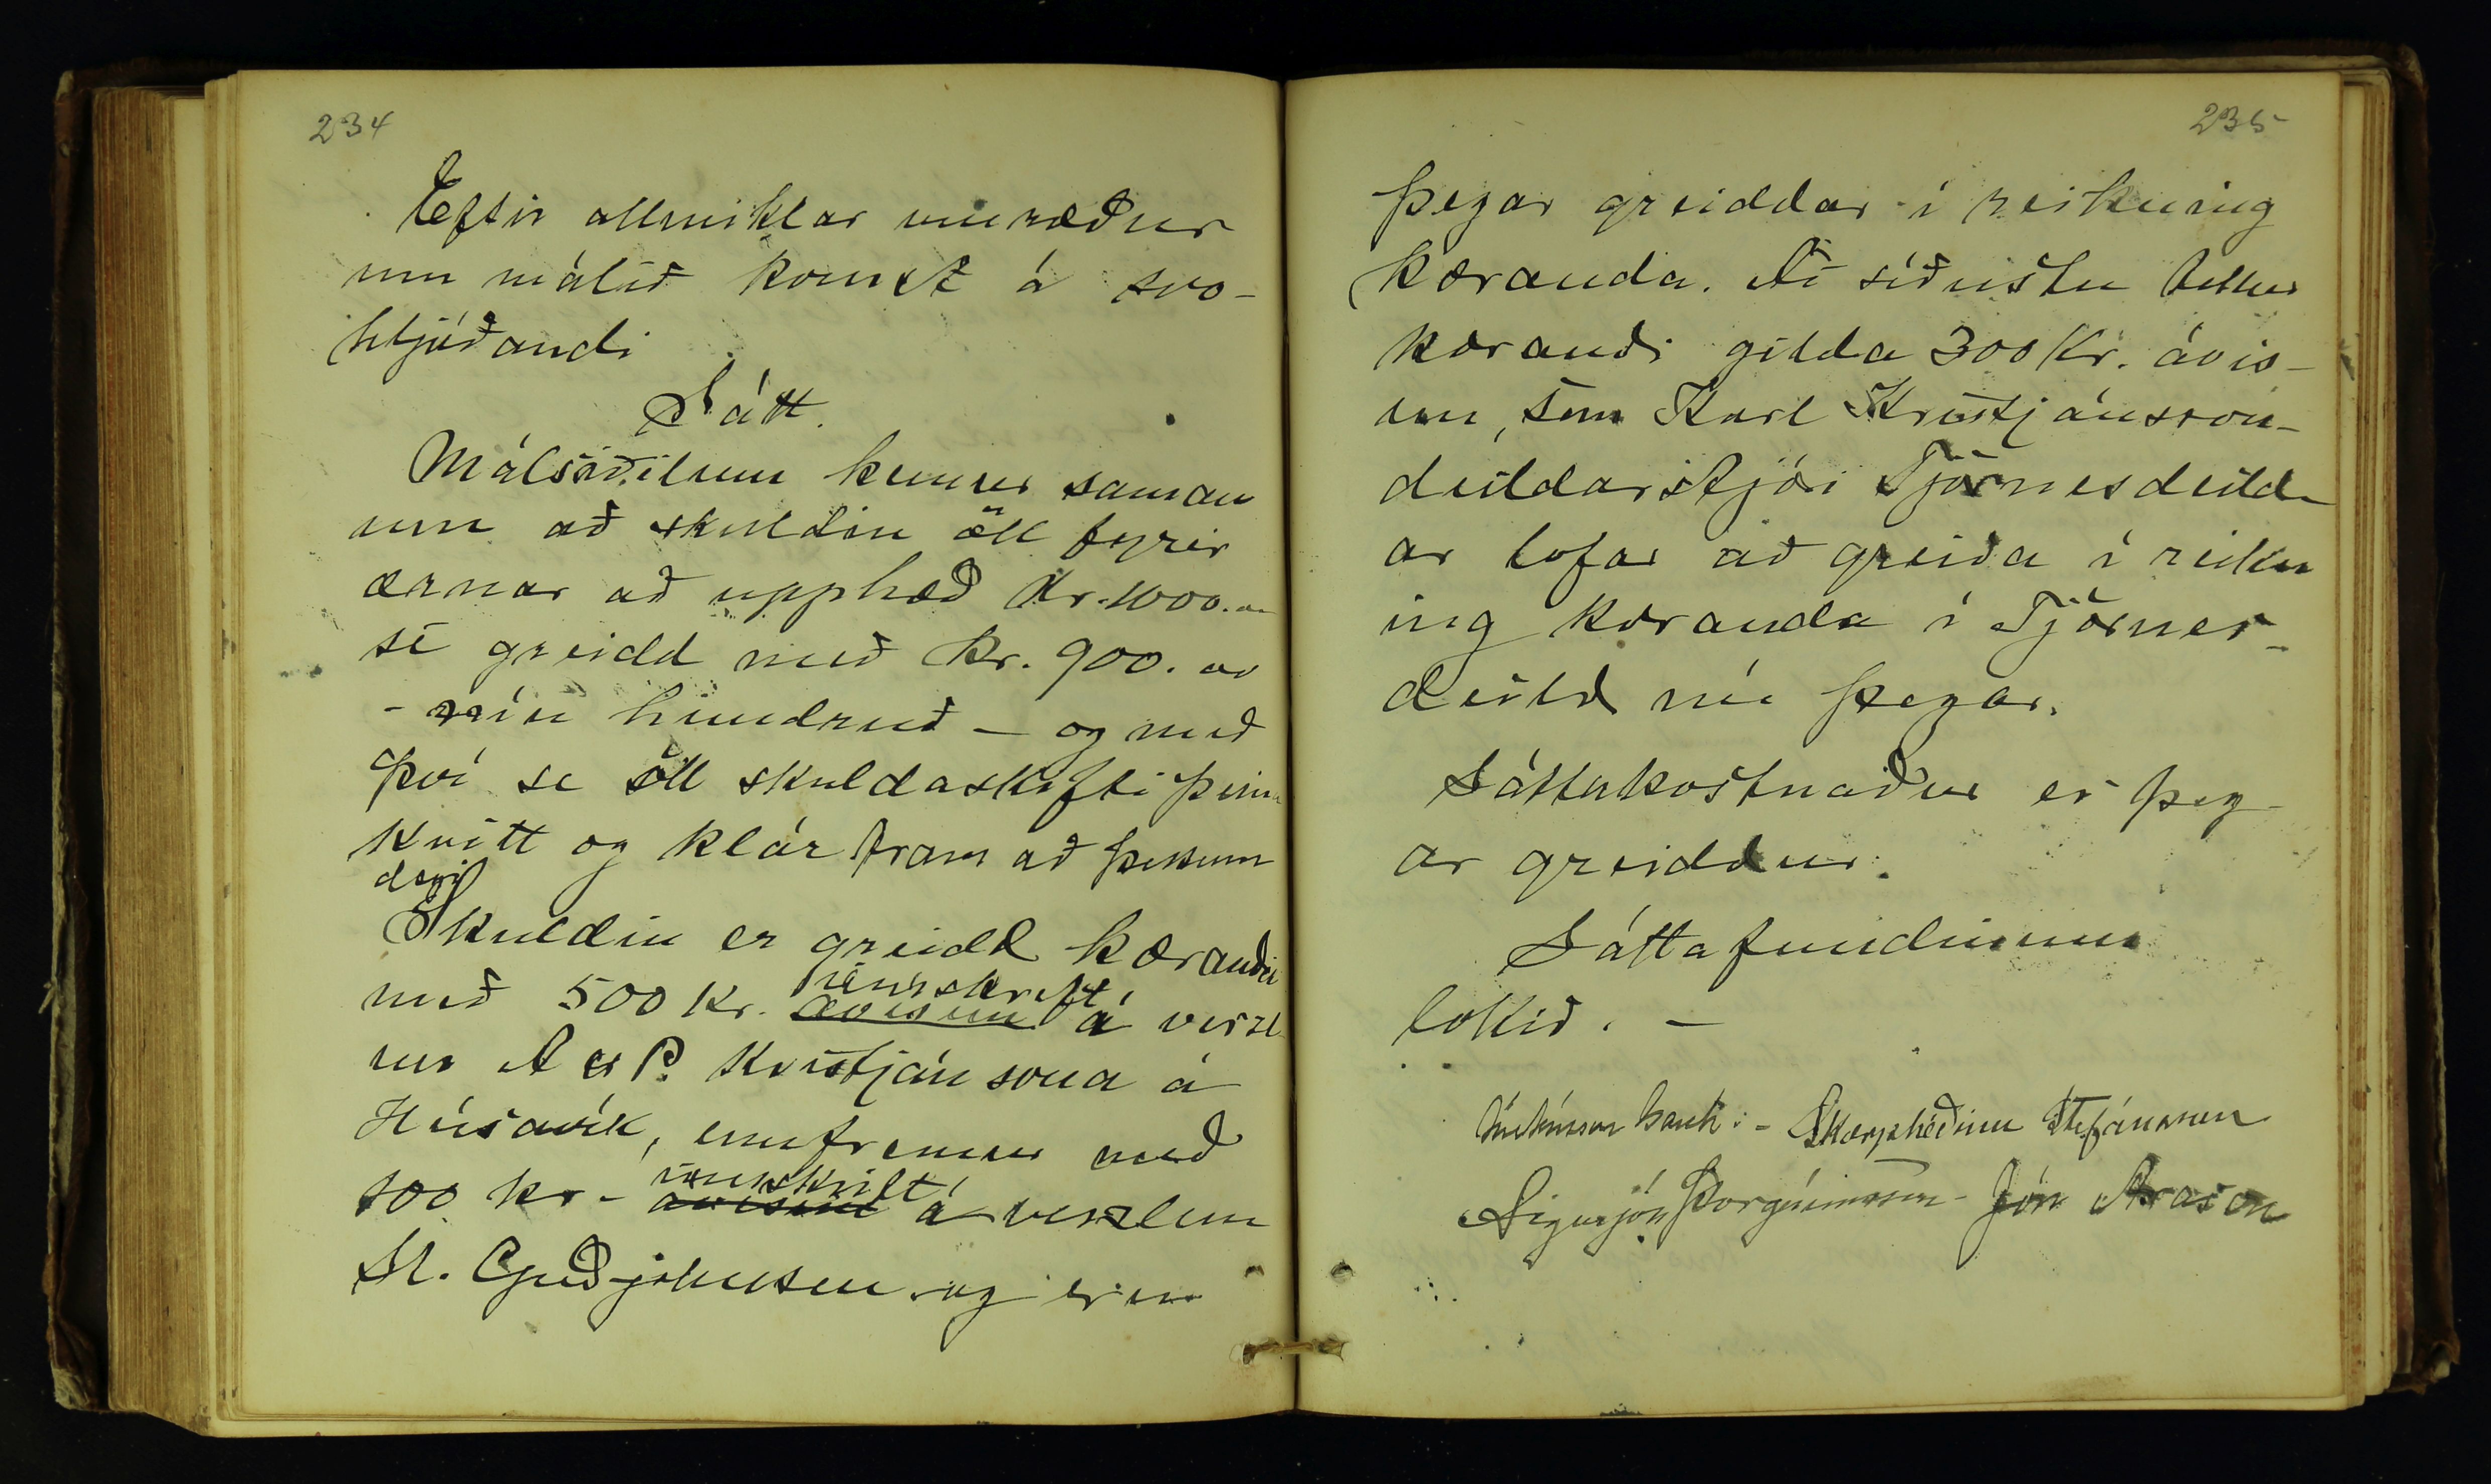 234
Eftir allmiklar umræður
um málið komst á svo-
hljóðandi
Sátt.
Málsaðilum kemur saman
um að skuldin öll fyrir
ærnar að upphæð Kr. 1000.00
sé greidd með Kr. 900.00
- níu hundruð - og með
því sé öll skuldaskifti þeirra
kvitt og klár fram að þessum
degi
Skuldin er greidd kæranda
með 500 Kr. innskrift á verzl
un A & P. Kristjánsona á
Húsavík, ennfremur með
100 kr - ávísun innskrift á verzlun
St. Guðjohnsen og eru
235
þegar greiddar í reikning
kæranda. Að síðustu tekur
kærandi gilda 300 Kr. ávís-
un, sem Karl Kristjánsson
deildarstjóri Tjörnesdeild-
ar lofar að greiða í reikn
ing kæranda í Tjörnes-
deild nú þegar.
Sáttakostnaður er þeg-
ar greiddur.
Sáttafundinum
lokið. -
Skarphéðinn Stefánsson
Sigurjón Þorgrímsson - Jón Arason